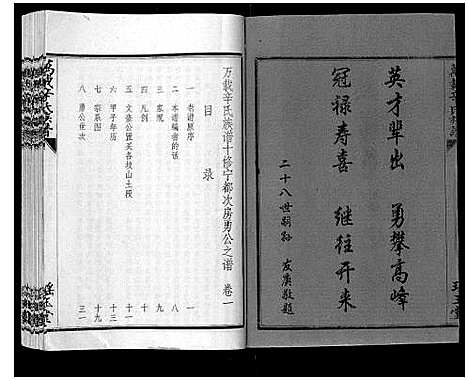 英才輩出　勇攀高峰
冠禄寿喜　继往开来
二十八世嗣孙　友漢敬題
万载辛氏族谱十修宁都次房勇公之谱　卷一
目　录
一　老谱原序　一
二　本谱编者的话　八
三　家规　九
四　凡例
五　文公暨吴各坟山土段
六　甲子年历　十三
七　宗系图　十九
八　勇公世次　三一